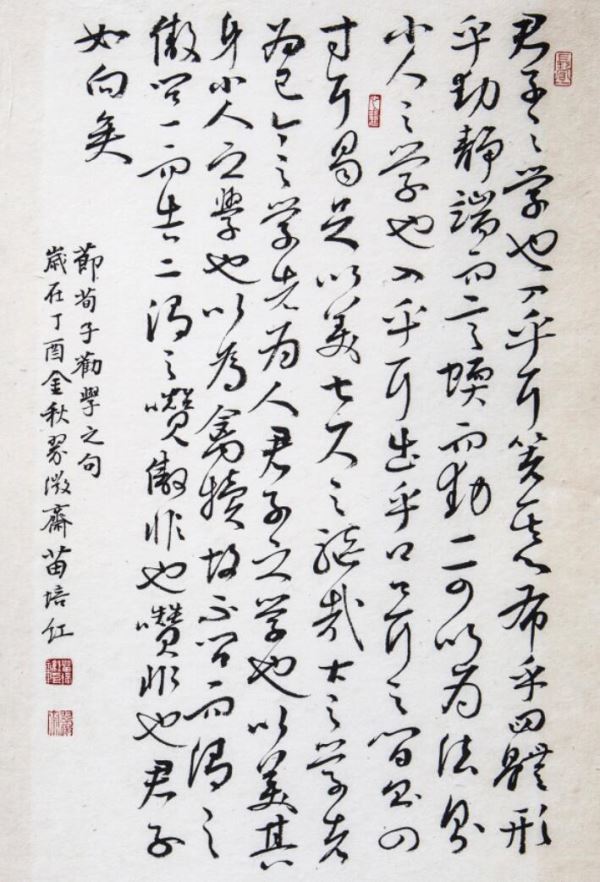 君子之学也入乎耳箸乎心布乎四體形
乎動静端而言蝡而動一可以为法则
小人之学也入乎耳出乎口口耳之间则四
寸耳曷足以美七尺之躯哉古之学者
为己今之学者为人君子之学也以美其
身小人之學也以為禽犢故不问而谓之
傲问一而告二谓之囋傲非也囋非也君子
如向矣
節荀子勸學之句
歲在丁酉金秋翠微齋苗培红